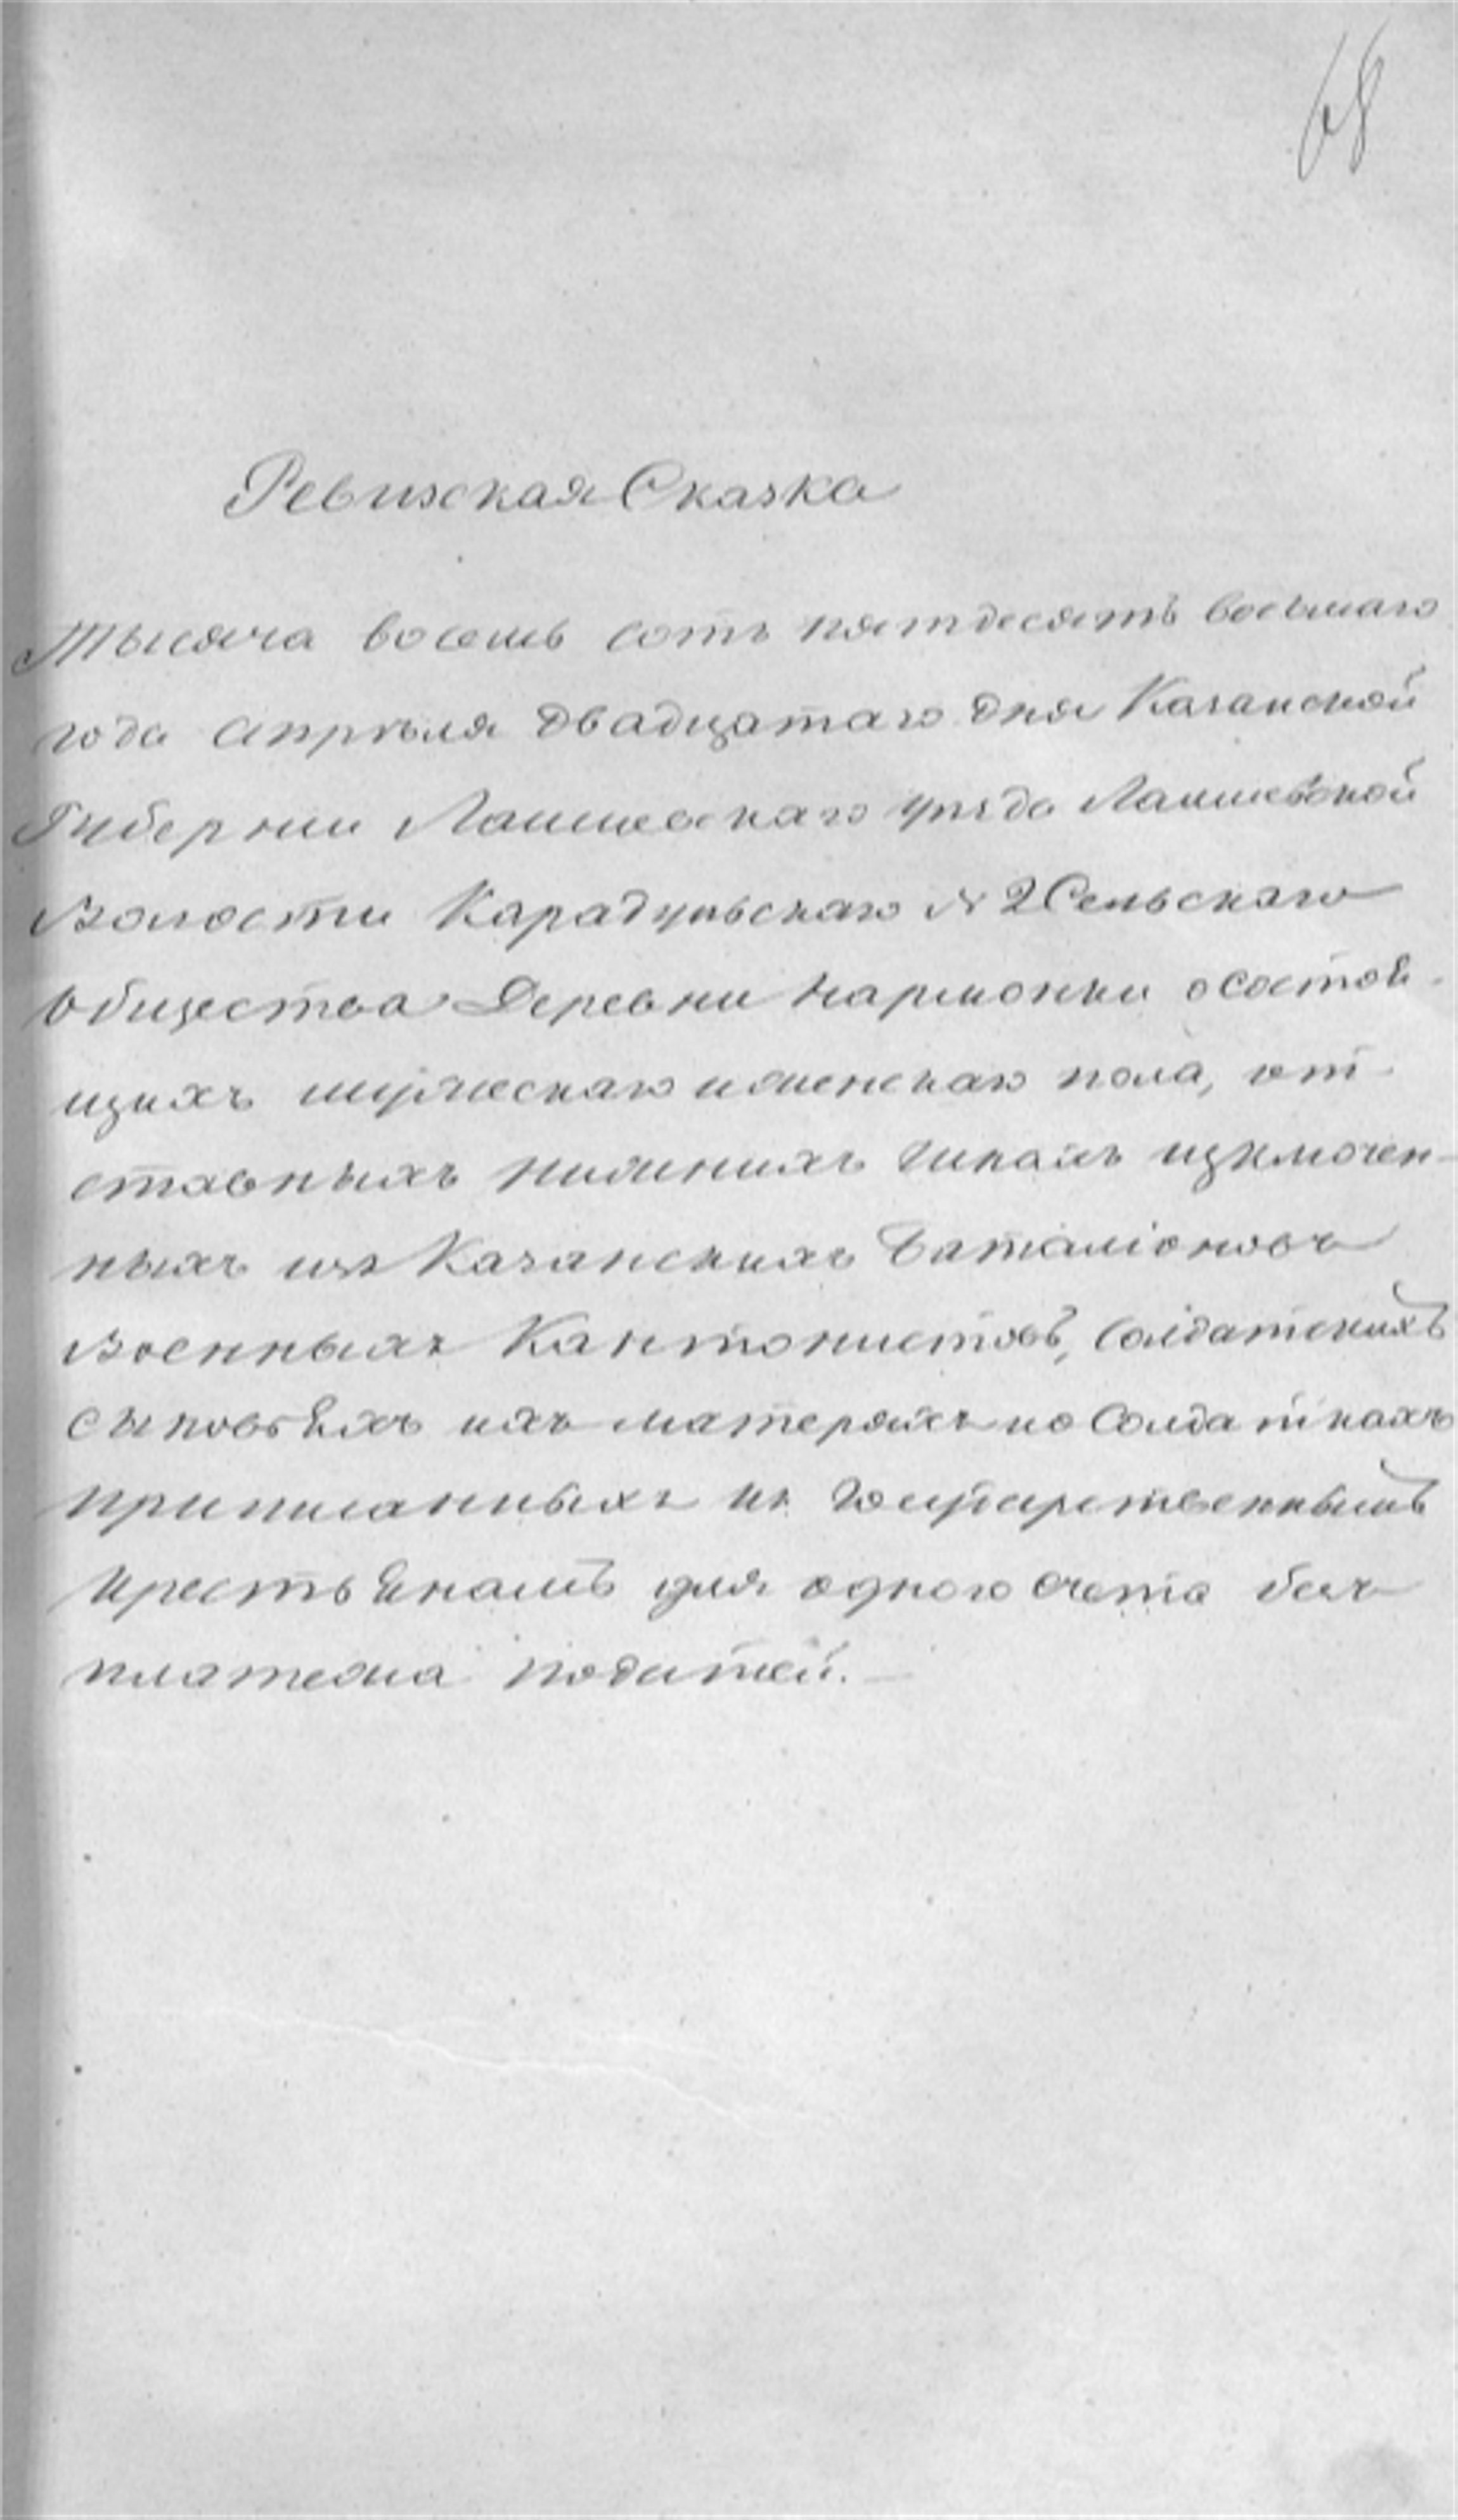 68
Ревизская Сказка
Тысяча восемь сотъ пятдесятъ восьмаго
года апрѣля двадцатаго дня Казанской
Губернии Лаишевскаго уѣзда Лаишевской
Волости Карадульскаго № 2 Сельскаго
Общества Деревни Нармонки о состоя-
щихъ мужескаго и женскаго пола, от-
ставныхъ нижнихъ чинахъ изключен-
ныхъ изъ Казанскихъ Баталіоновъ
Военныхъ Кантонистовъ, Солдатскихъ
сыновьяхъ ихъ матеряхъ и о Солдаткахъ
приписанныхъ къ Государственнымъ
крестьянамъ для одного счета безъ
платежа податей. —